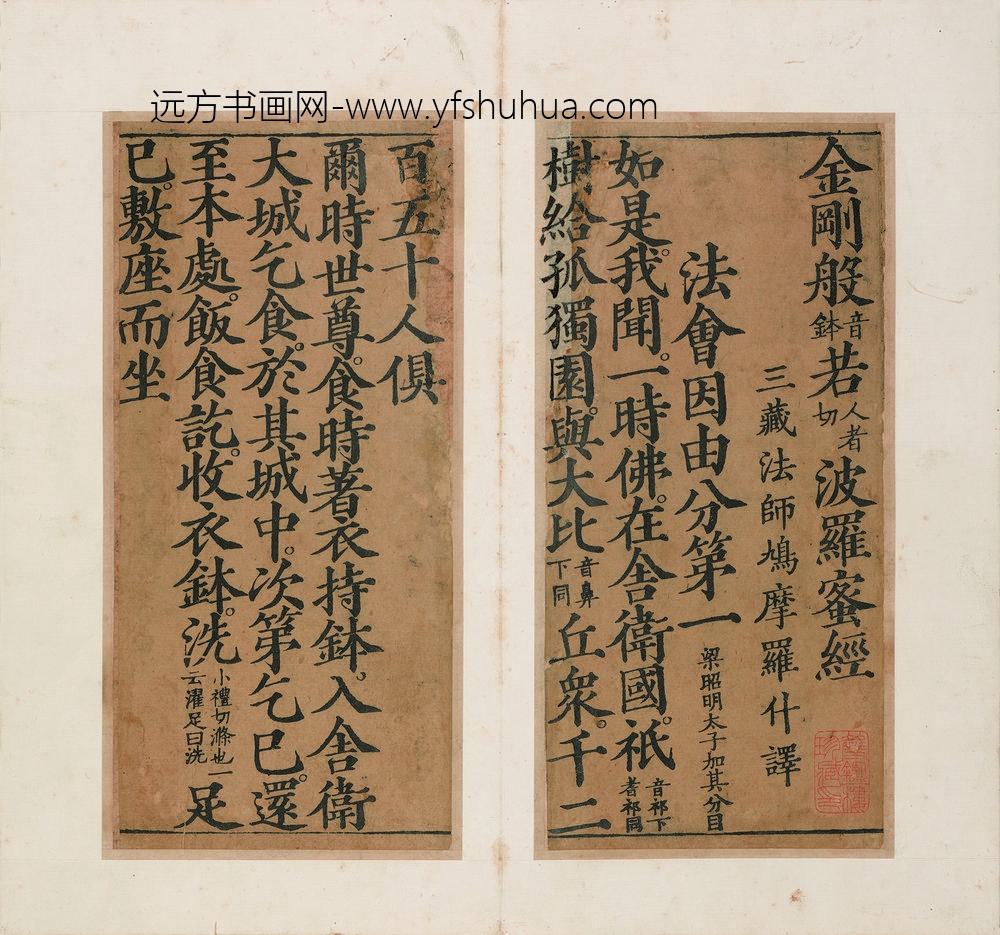 远方书画网-www.yfshuhua.com
金剛般音鉢若人者切波羅蜜經
三藏法師鳩摩羅什譯
法會因由分第一梁昭明太子加其分目
如是。我聞。一時佛。在舍衛國。祇音祁下耆祁同
樹給孤獨園。與大比音鼻下同丘衆。千二
百五十人俱
爾時世尊。食時著衣持鉢。入舍衛
大城乞食。於其城中。次第乞已。還
至本處。飯食訖。收衣鉢。洗小禮切滌也一云濯足曰洗足
已。敷座而坐